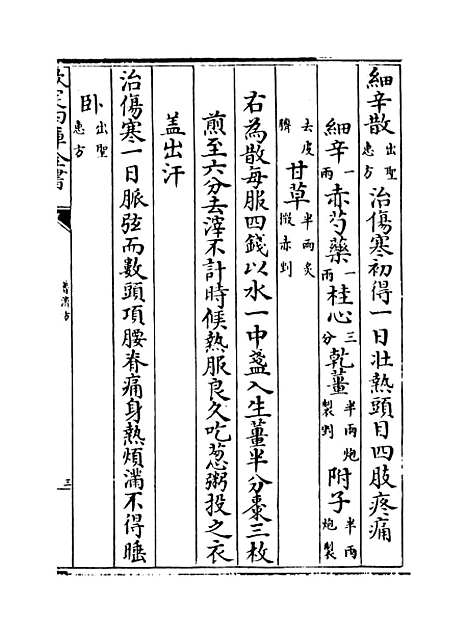 細辛散出聖惠方治傷寒初得一日壯熱頭目四肢疼痛
細辛一兩赤芍藥一兩桂心三分乾薑半兩炮製剉附子半兩炮製
去皮臍甘草半兩炙微赤剉
右為散每服四錢以水一中盞入生薑半分棗三枚
煎至六分去滓不計時候熱服良久吃葱粥投之衣
蓋出汗
治傷寒一日脈弦而數頭項腰脊痛身熱煩滿不得睡
臥出聖惠方
欽定四庫全書
普濟方
三